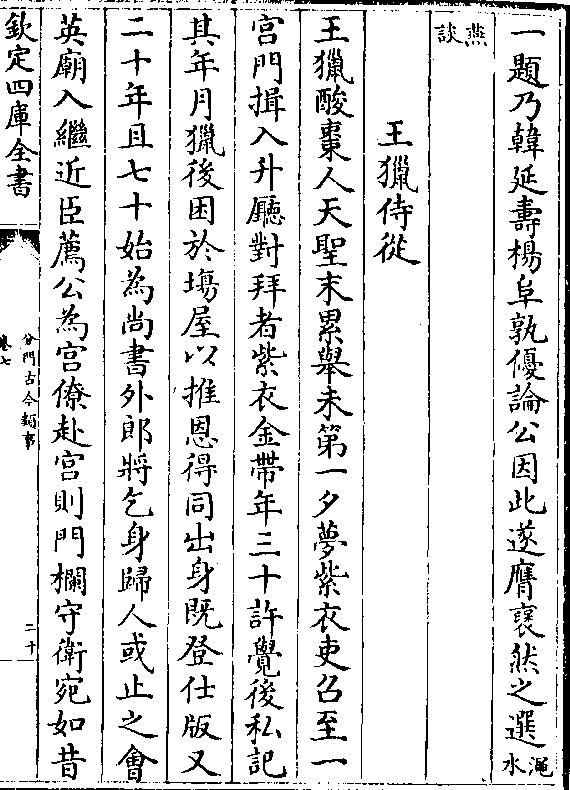 一題乃韓延壽楊阜孰優論公因此遂膺襃然之選澠水
燕談
王獵侍從
王獵酸棗人天聖末累舉未第一夕夢紫衣吏召至一
宮門揖入升廳對拜者紫衣金帶年三十許覺後私記
其年月獵後困於塲屋以推恩得同出身既登仕版又
二十年且七十始為尚書外郎將乞身歸人或止之會
英廟入繼近臣薦公為宮僚赴宮則門欄守衛宛如昔
欽定四庫全書
分門古今類事
卷七
二十